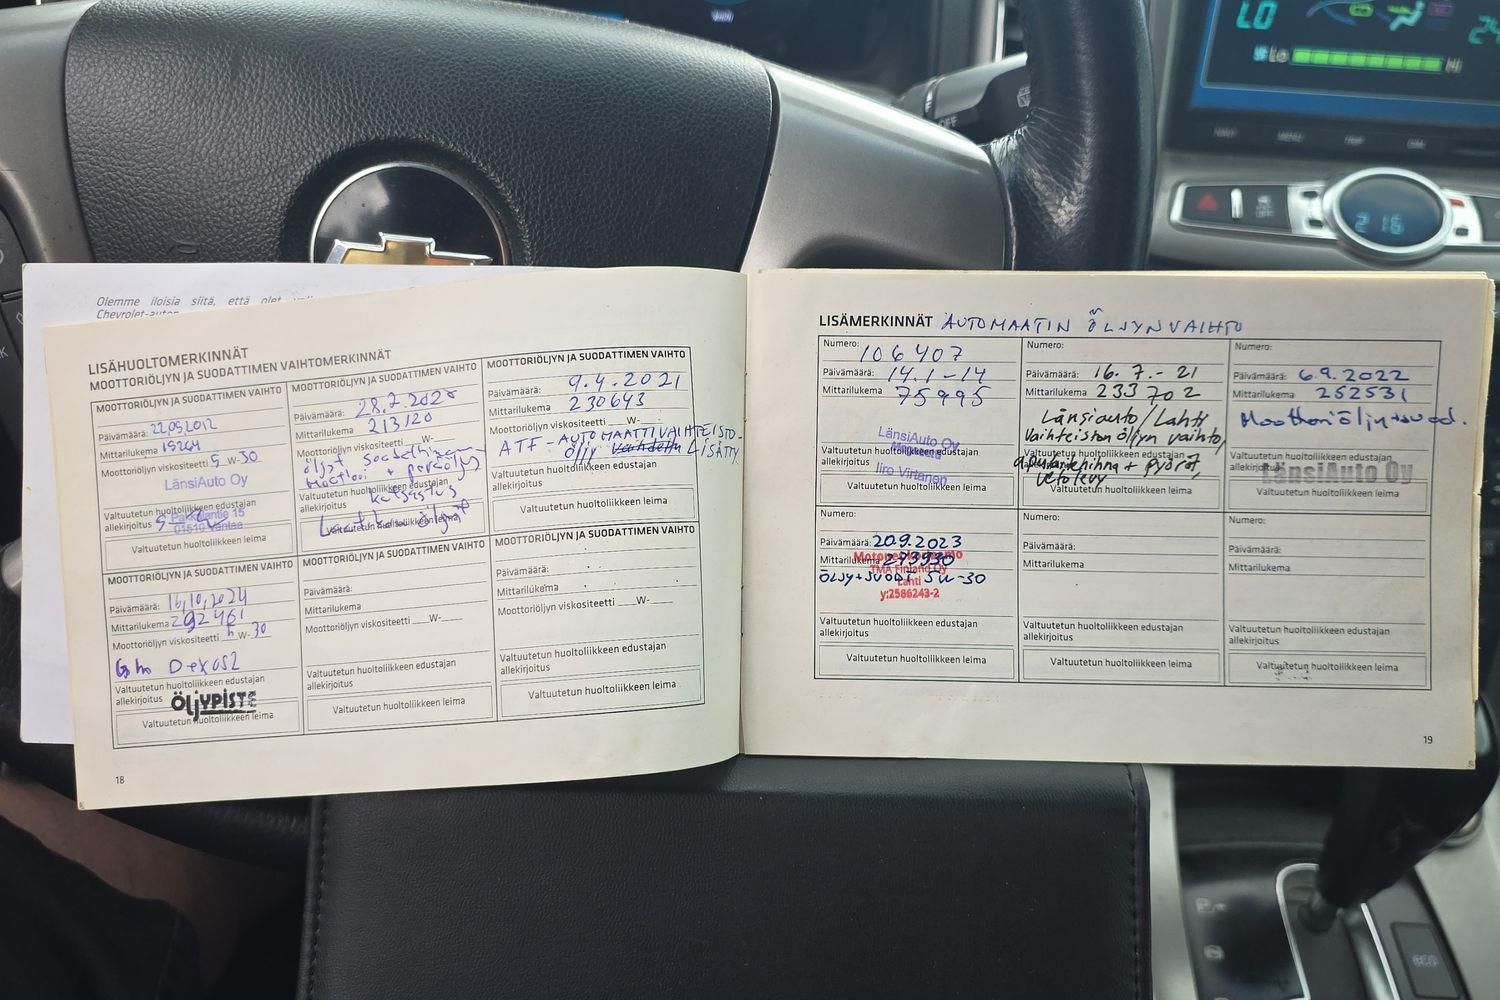 LO
Lo
HI
OFF
216
Olemme iloisia siitä, että olet
Chevrolet-auton
LISÄHUOLTOMERKINNÄT
MOOTTORIÖLJYN JA SUODATTIMEN VAIHTOMERKINNÄT
MOOTTORIÖLJYN JA SUODATTIMEN VAIHTO
Päivämäärä: 22.05.2012
Mittarilukema
Moottoriöljyn viskositeetti 5 W-30
LänsiAuto Oy
Valtuutetun huoltoliikkeen edustajan
allekirjoitus
Pakkalantie 15
01510 Vantaa
Valtuutetun huoltoliikkeen leima
MOOTTORIÖLJYN JA SUODATTIMEN VAIHTO
Päivämäärä: 28.7.2020
Mittarilukema 213120
Moottoriöljyn viskositeetti __W-__
öljyt
Moottori +
Valtuutetun huoltoliikkeen edustajan
allekirjoitus
katsastus
Valtuutetun huoltoliikkeen leima
MOOTTORIÖLJYN JA SUODATTIMEN VAIHTO
Päivämäärä: 9.4.2021
Mittarilukema 230643
Moottoriöljyn viskositeetti __W-__
ATF-AUTOMAATTIVAIHTEISTO-
ÖLJY vaihdettu LISÄTTY.
Valtuutetun huoltoliikkeen edustajan
allekirjoitus
Valtuutetun huoltoliikkeen leima
MOOTTORIÖLJYN JA SUODATTIMEN VAIHTO
Päivämäärä: 16,10,2024
Mittarilukema 292461
Moottoriöljyn viskositeetti __W-30
Dexos2
Valtuutetun huoltoliikkeen edustajan
allekirjoitus
ÖLJYPISTE
Valtuutetun huoltoliikkeen leima
MOOTTORIÖLJYN JA SUODATTIMEN VAIHTO
Päivämäärä:
Mittarilukema
Moottoriöljyn viskositeetti __W-__
Valtuutetun huoltoliikkeen edustajan
allekirjoitus
Valtuutetun huoltoliikkeen leima
MOOTTORIÖLJYN JA SUODATTIMEN VAIHTO
Päivämäärä:
Mittarilukema
Moottoriöljyn viskositeetti __W-__
Valtuutetun huoltoliikkeen edustajan
allekirjoitus
Valtuutetun huoltoliikkeen leima
18
LISÄMERKINNÄT AUTOMAATIN ÖLJYNVAIHTO
Numero: 106407
Päivämäärä: 14.1-14
Mittarilukema 75995
LänsiAuto Oy
Valtuutetun huoltoliikkeen edustajan
allekirjoitus
Iiro Virtanen
Valtuutetun huoltoliikkeen leima
Numero:
Päivämäärä: 16.7.-21
Mittarilukema 233702
Länsiauto/Lahti
Vaihteiston öljyn vaihto,
Valtuutetun huoltoliikkeen edustajan
allekirjoitus
apulaitehihna + pyörät,
vetolevy
Valtuutetun huoltoliikkeen leima
Numero:
Päivämäärä: 6.9.2022
Mittarilukema 252531
Moottoriöljy+suod.
Valtuutetun huoltoliikkeen edustajan
allekirjoitus
LänsiAuto Oy
Valtuutetun huoltoliikkeen leima
Numero:
Päivämäärä: 20.9.2023
Mittarilukema 273930
TMA Finland Oy
ÖLJY+SUODAT 5W-30
Lahti
y:2586243-2
Valtuutetun huoltoliikkeen edustajan
allekirjoitus
Valtuutetun huoltoliikkeen leima
Numero:
Päivämäärä:
Mittarilukema
Valtuutetun huoltoliikkeen edustajan
allekirjoitus
Valtuutetun huoltoliikkeen leima
Numero:
Päivämäärä:
Mittarilukema
Valtuutetun huoltoliikkeen edustajan
allekirjoitus
Valtuutetun huoltoliikkeen leima
19
ECO